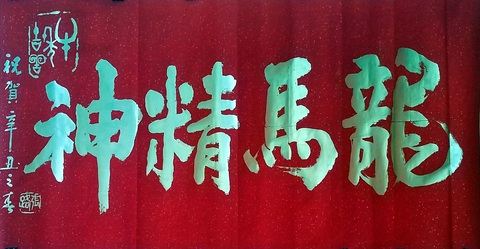 龍馬精神
祝賀辛丑之春